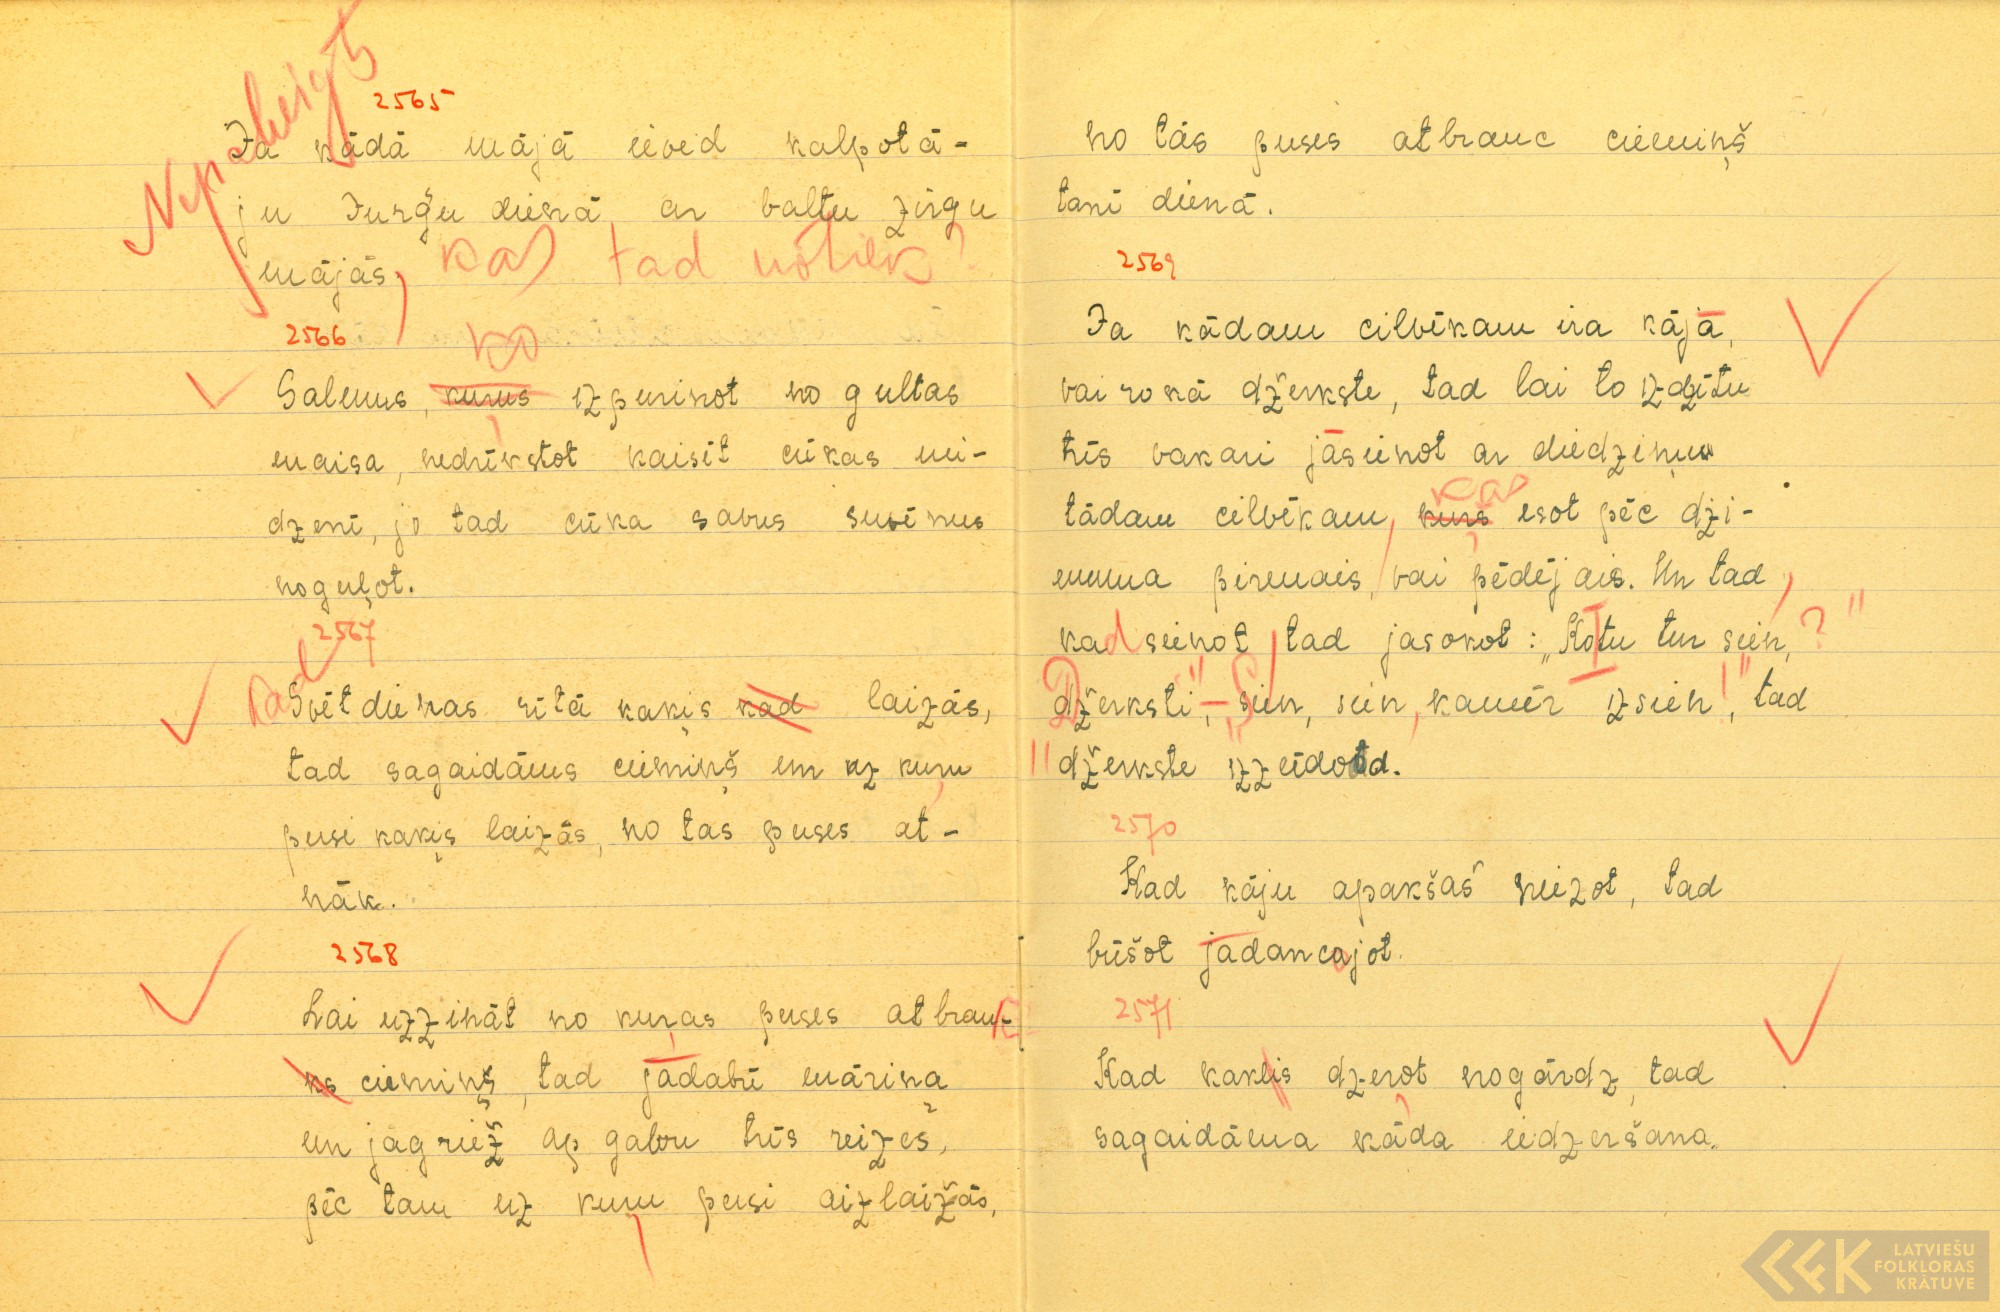 Nepabeigts
2565
Ja kādā mājā ieved kalpotā-
ju Jurģu dienā ar baltu zirgu
mājās, kas tad notiek?
2566
ko
Salmus, kurus izpurinot no gultas
maisa, nedrīkstot kaisīt cūkas mi-
dzenī, jo tad cūka savus suvēnus
noguļot.
2567
Kad
Svētdienas rītā kaķis kad laizās,
tad sagaidāms ciemiņš un uz kuru
pusi kaķis laizās, no tās puses at-
nāk.
2568
Lai uzzināt no kuŗas puses atbrauk-
ks ciemiņš, tad jādabū māriņa
un jāgriež ap galvu trīs reizes,
pēc tam uz kuru pusi aizlaižās,
no tās puses atbrauc ciemiņš
tanī dienā.
2569
Ja kādam cilvēkam ira kājā,
vai rokā džerkste, tad lai to izdzītu
trīs vakari jāsienot ar diedziņu
kas
tādam cilvēkam, kurš esot pēc dzi-
muma pirmais, vai pēdējais. Un tad,
kad sienot, tad jasokot: „Ko tu tur sien,?"
džerksti", – Sien, sien, kamēr izsien!", tad
džerkste izzeidotd.
2570
Kad kāju apakšas niezot, tad
būšot jādancojot.
2571
Kad kaklis dzerot nogārdz, tad
sagaidāma kāda iedzeršana.
LATVIEŠU
FOLKLORAS
KRĀTUVE